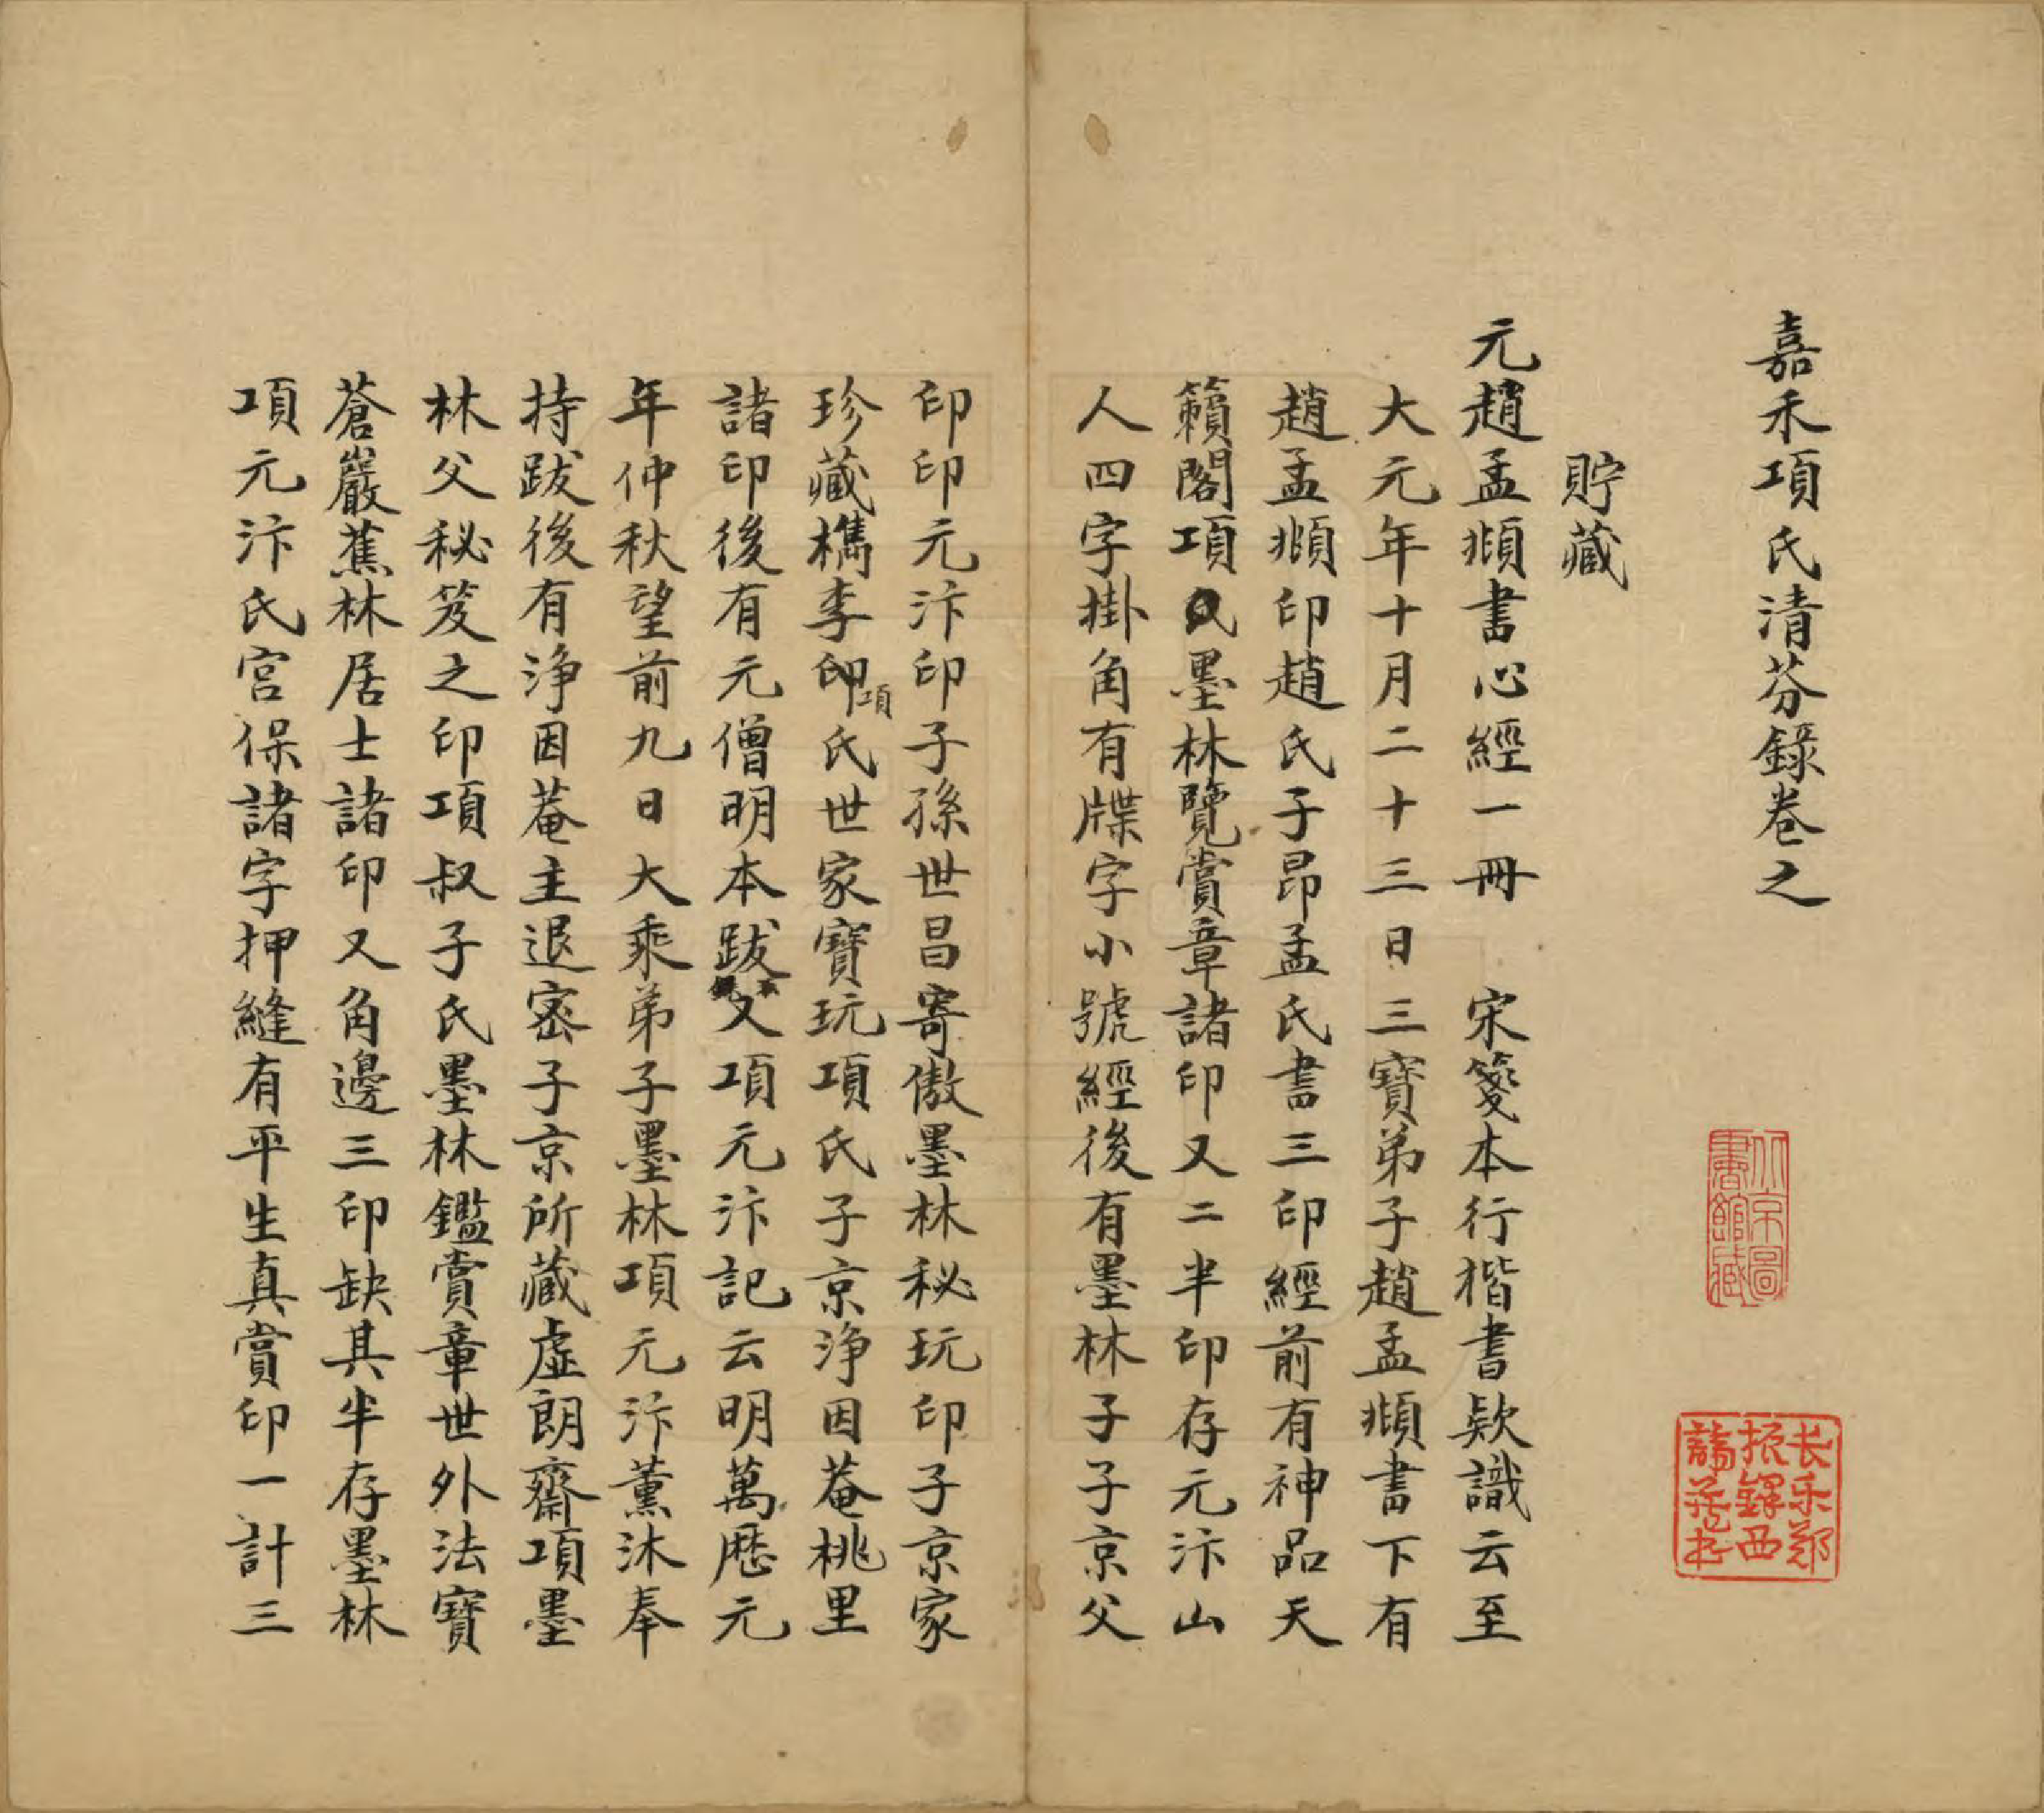 嘉禾項氏清芬錄卷之
貯藏
元趙孟頫書心經一冊　宋箋本行楷書欵識云至
大元年十月二十三日三寶弟子趙孟頫書下有
趙孟頫印趙氏子昂孟氏書三印經前有神品天
籟閣項氏墨林覽賞章諸印又二半印存元汴山
人四字掛角有牒字小號經後有墨林子子京父
印印元汴印子孫世昌寄傲墨林秘玩印子京家
珍藏檇李印項氏世家寶玩項氏子京淨因菴桃里
諸印後有元僧明本跋又項元汴記云明萬厯元
年仲秋望前九日大乘弟子墨林項元汴薰沐奉
持跋後有淨因菴主退密子京所藏虛朗齋項墨
林父秘笈之印項叔子氏墨林鑑賞章世外法寶
蒼巖蕉林居士諸印又角邊三印缺其半存墨林
項元汴氏宮保諸字押縫有平生真賞印一計三
北京圖書館藏
長樂鄭振鐸西諦藏書